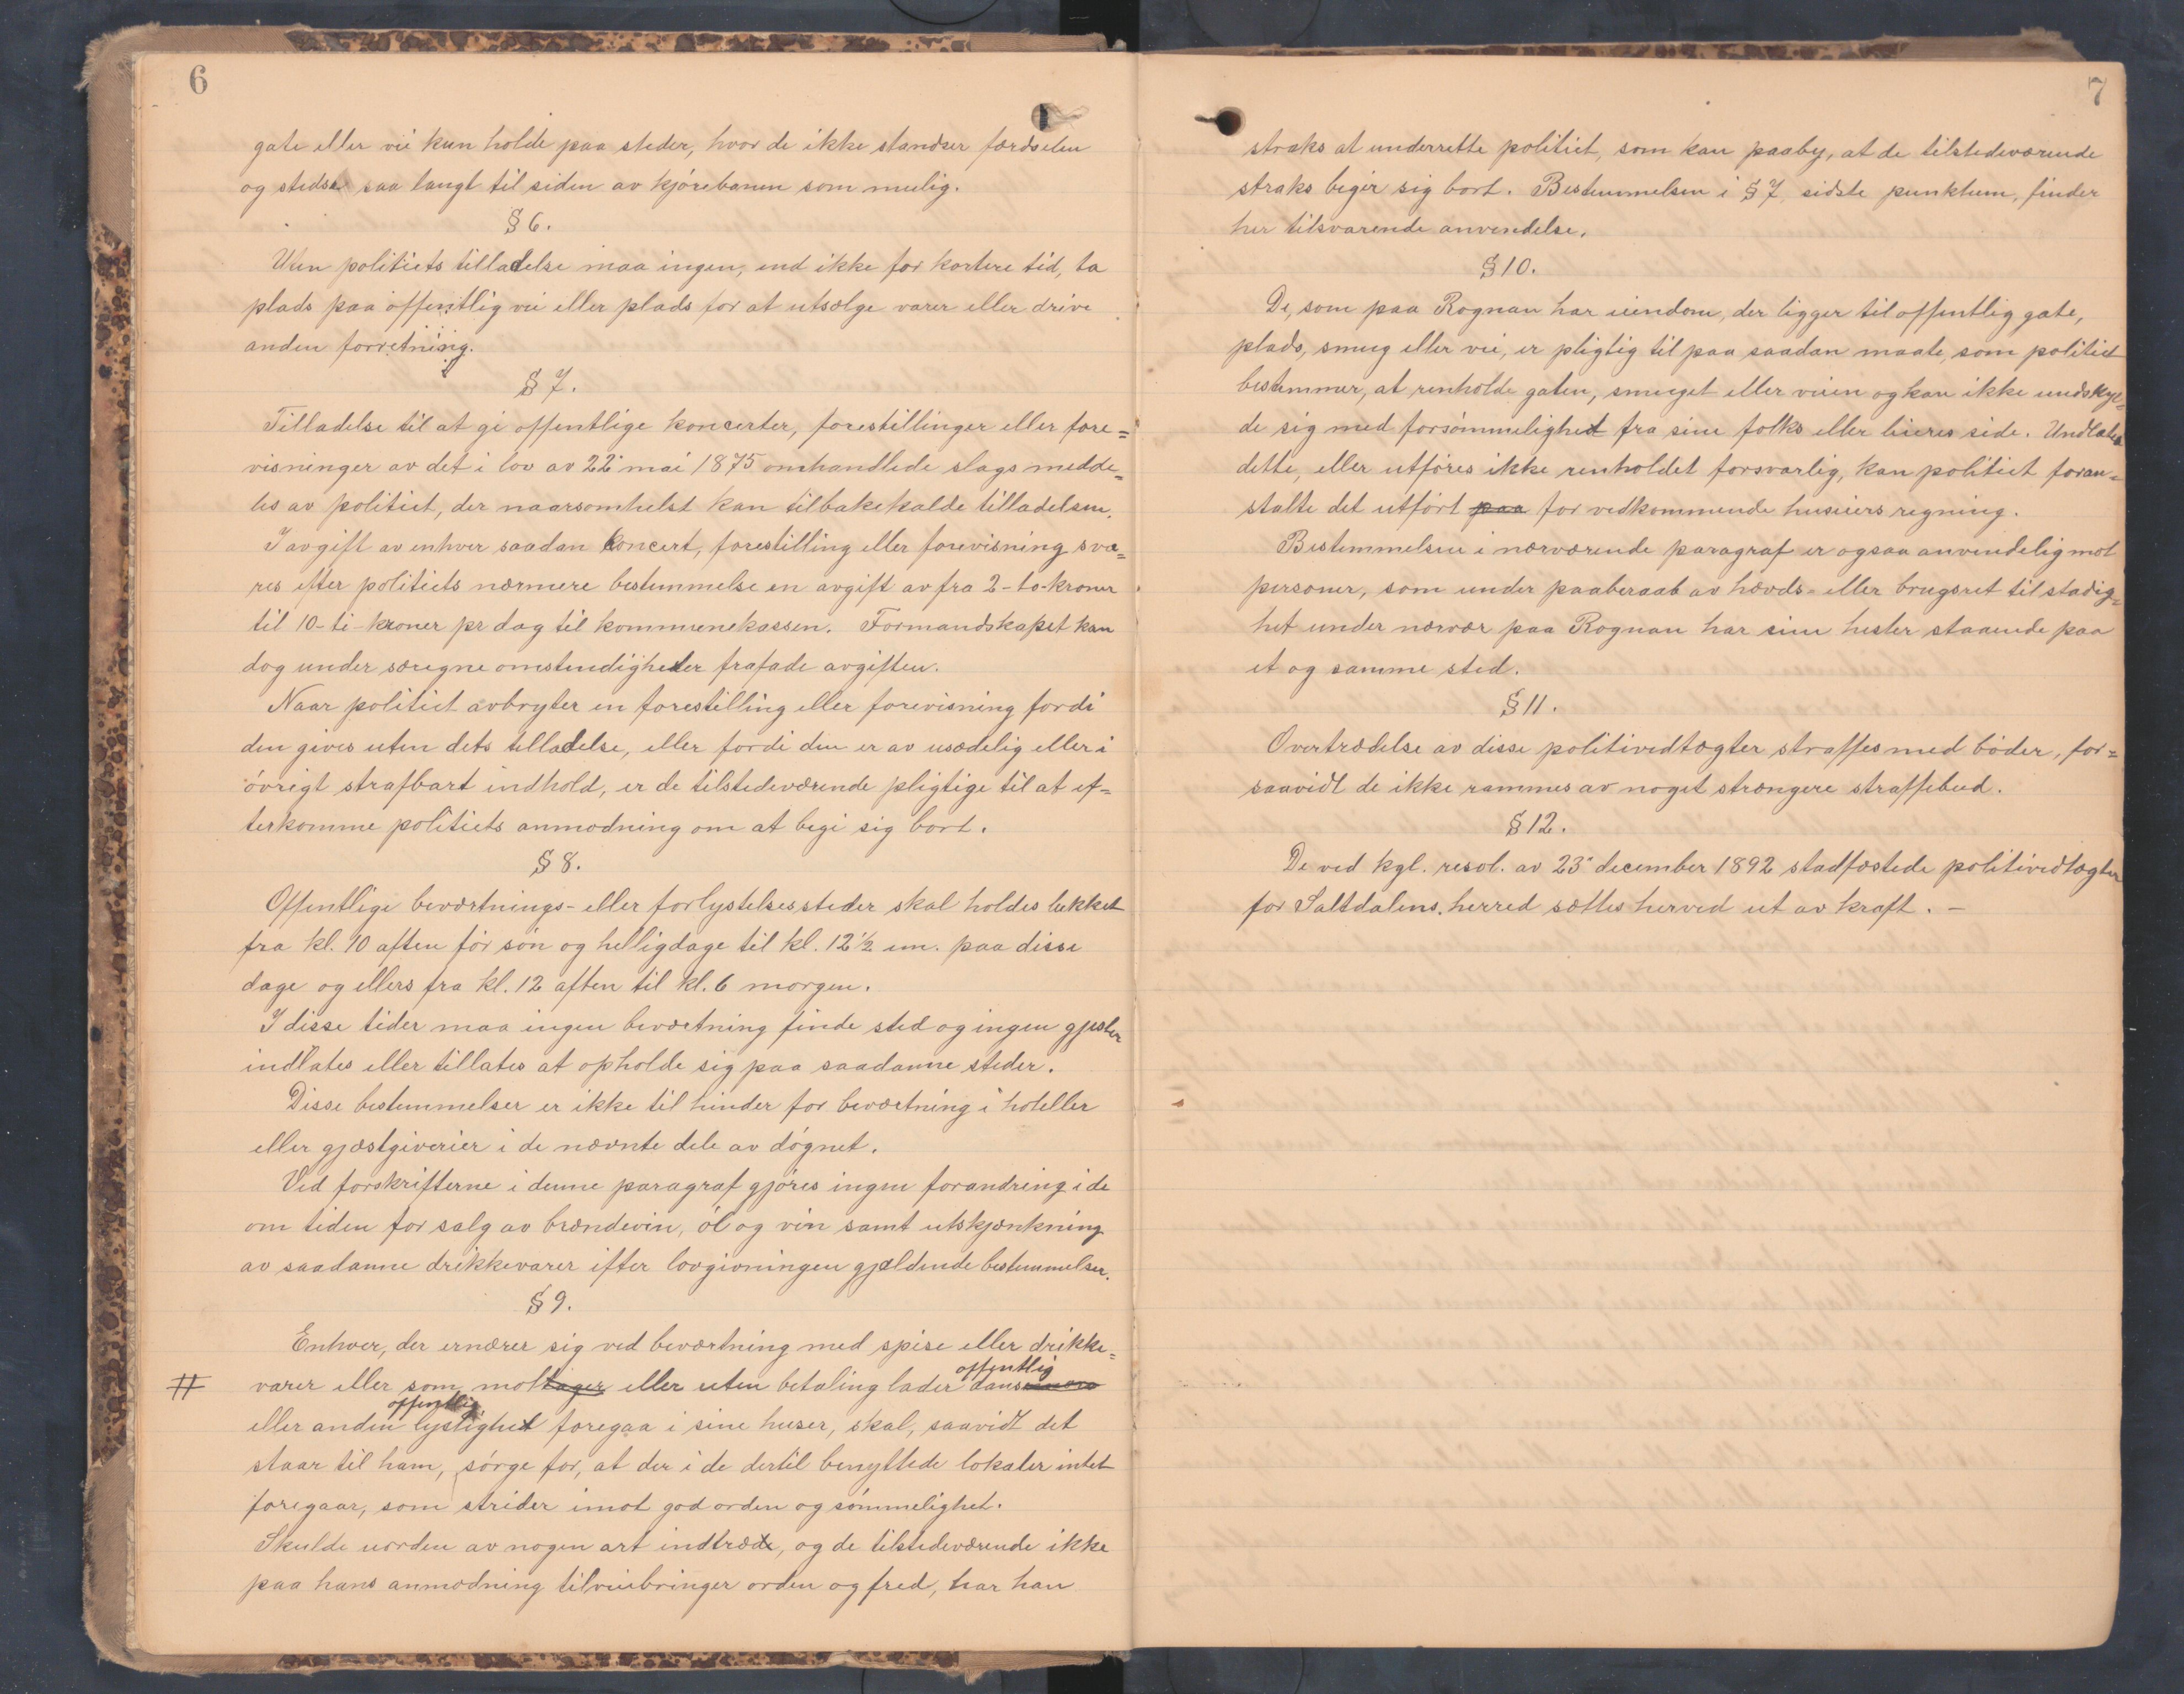 6
gate eller vei kun holde paa steder, hvor de ikke standser færdselen
og stedse saa langt til siden av kjørebanen som mulig.
§ 6.
Uten politiets tilladelse maa ingen, end ikke for kortere tid, ta
plads paa offentlig vei eller plads for at utsælge varer eller drive
anden forretning.
§ 7.
Tilladelse til at gi offentlige koncerter, forestillinger eller fore=
visninger av det i lov av 22' mai 1875 omhandlede slags medde=
les av politiet, der naarsomhelst kan tilbakekalde tilladelsen.
I avgift av enhver saadan koncert, forestilling eller forevisning sva=
res efter politiets nærmere bestemmelse en avgift av fra 2-to-kroner
til 10-ti-kroner pr dag til kommunekassen. Formandskapet kan
dog under særegne omstendigheter frafade avgiften.
Naar politiet avbryter en forestilling eller forevisning fordi
den gives uten dets tilladelse, eller fordi den er av usædelig eller i
øvrigt strafbart indhold, er de tilstedeværende pligtige til at ef=
terkomme politiets anmodning om at begi sig bort.
§ 8.
Offentlige beværtnings- eller forlystelsessteder skal holdes lukket
fra kl. 10 aften før søn og helligdage til kl. 12½ em. paa disse
dage og ellers fra kl. 12 aften til kl. 6 morgen.
I disse tider maa ingen beværtning finde sted og ingen gjester
indlates eller tillates at opholde sig paa saadanne steder.
Disse bestemmelser er ikke til hinder for beværtning i hoteller
eller gjæstgiverier i de nævnte dele av døgnet.
Ved forskrifterne i denne paragraf gjøres ingen forandring i de
om tiden for salg av brændevin, øl og vin samt utskjænkning
av saadanne drikkevarer efter lovgivningen gjældende bestemmelser.
§ 9.
Enhver, der ernærer sig ved beværtning med spise eller drikke=
offentlig
# varer eller som mottager eller uten betaling lader dans
offentlig
eller anden lystighet foregaa i sine huser, skal, saavidt det
staar til ham, sørge for, at der i de dertil benyttede lokaler intet
foregaar, som strider imot god orden og sømmelighet.
Skulde uorden av nogen art indtræde, og de tilstedeværende ikke
paa hans anmodning tilveiebringer orden og fred, har han
7
straks at underrette politiet, som kan paaby, at de tilstedeværende
straks begir sig bort. Bestemmelsen i § 7, sidste punktum, finder
her tilsvarende anvendelse.
§ 10.
De, som paa Rognan har eiendom, der ligger til offentlig gate,
plads, smug eller vei, er pligtig til paa saadan maate, som politiet
bestemmer, at renholde gaten, smuget eller veien og kan ikke undskyl=
de sig med forsømmelighet fra sine folks eller leieres side. Undlates
dette, eller utføres ikke renholdet forsvarlig, kan politiet foran=
stalte det utført paa for vedkommende huseiers regning.
Bestemmelsen i nærværende paragraf er ogsaa anvendelig mot
personer, som under paaberaab av hævds- eller brugsret til stadig=
het under nærvær paa Rognan har sine hester staaende paa
et og samme sted.
§ 11.
Overtrædelse av disse politivedtægter straffes med bøder, for=
saavidt de ikke rammes av noget strængere straffebud.
§ 12.
De ved kgl. resol. av 23' december 1892 stadfæstede politivedtægter
for Saltdalens herred sættes herved ut av kraft. –